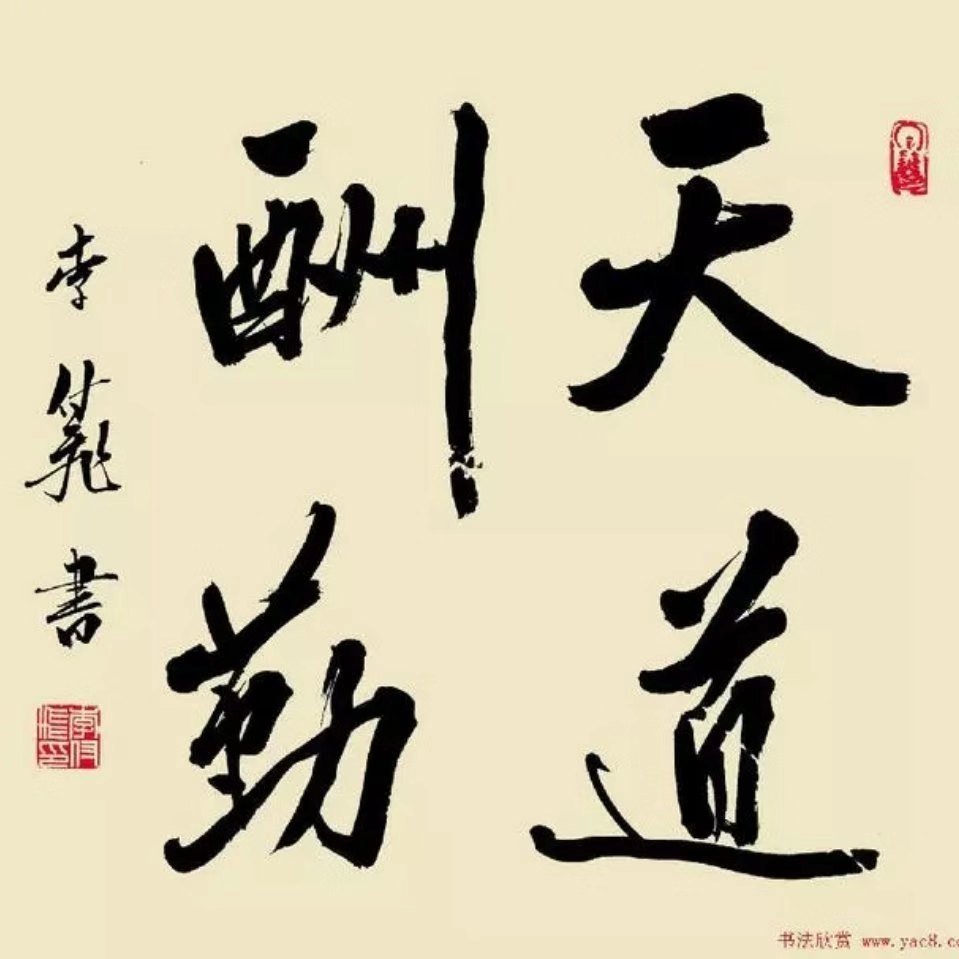 天道
酬勤
李付書
书法欣赏 www.yac8.co